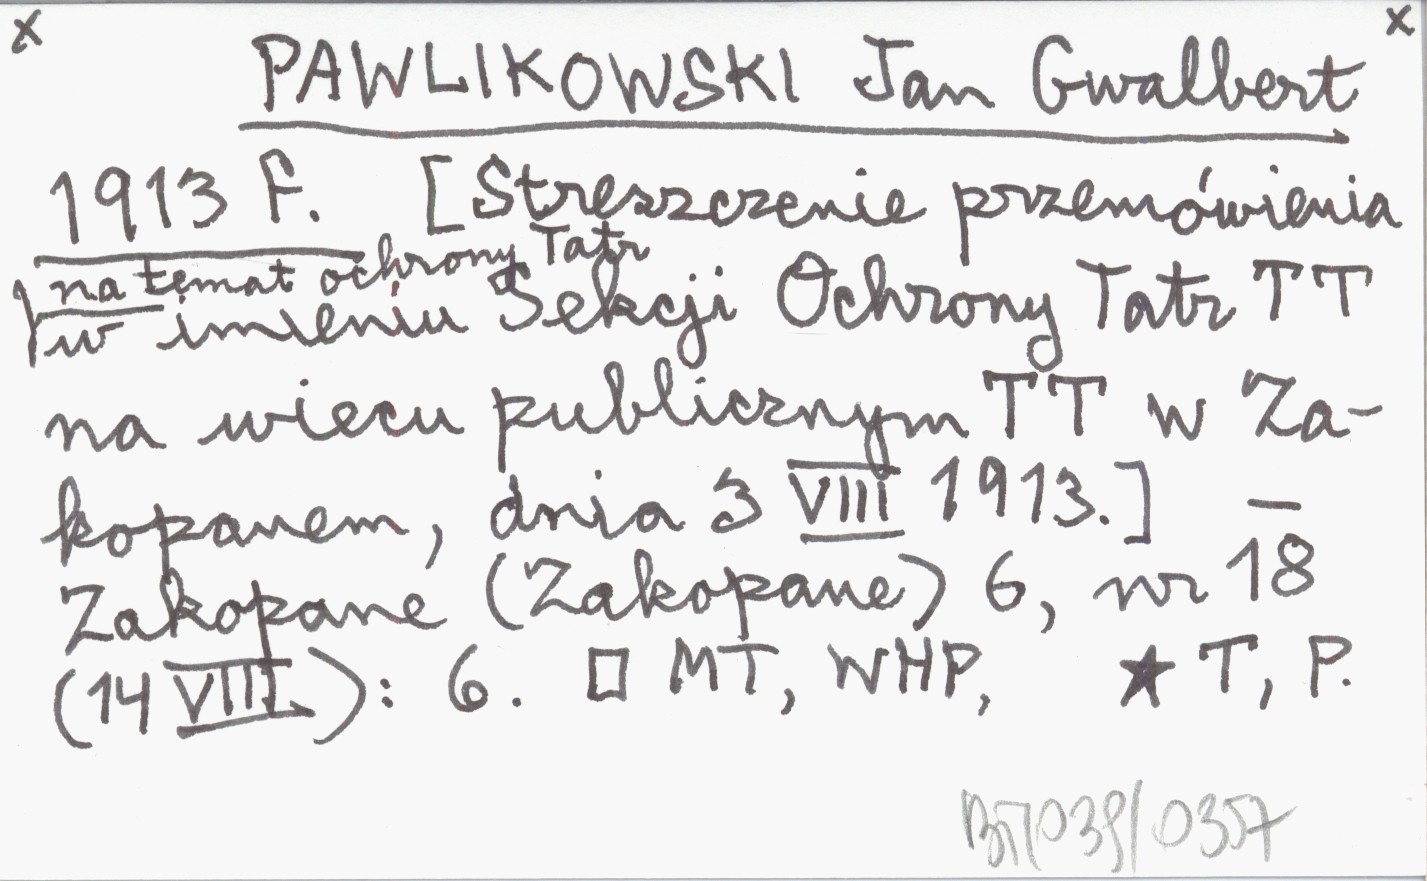 x x
PAWLIKOWSKI Jan Gwalbert
1913 F. [Streszczenie przemówienia
na temat ochrony Tatr
w imieniu Sekcji Ochrony Tatr TT
na wiecu publicznym TT w Za-
kopanem, dnia 3 VIII 1913.] —
Zakopane (Zakopane) 6, nr 18
(14 VIII.): 6. □ MT, WHP, ★ T, P.